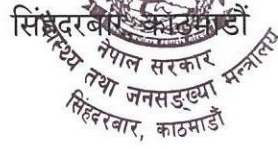 सिंहदरबार काठमाडौं
नेपाल सरकार
स्वास्थ्य तथा जनसङ्ख्या मन्त्रालय
सिंहदरबार, काठमाडौं